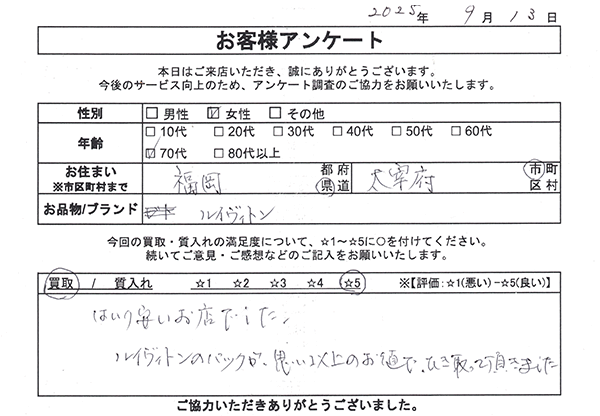 2025年 9月 13日
お客様アンケート
本日はご来店いただき、誠にありがとうございます。
今後のサービス向上のため、アンケート調査のご協力をお願いいたします。
性別 □男性 ☑女性 □その他
年齢 □10代 □20代 □30代 □40代 □50代 □60代
☑70代 □80代以上
お住まい ※市区町村まで 福岡 都府県道 太宰府 市町区村
お品物/ブランド ルイヴィトン
今回の買取・質入れの満足度について、☆1～☆5に○を付けてください。
続いてご意見・ご感想などのご記入をお願いいたします。
買取 / 質入れ ☆1 ☆2 ☆3 ☆4 ☆5 ※【評価:☆1(悪い)-☆5(良い)】
はいり安いお店でした、
ルイヴィトンのバックが、思い以上のお値で、ひき取って頂きました
ご協力いただきありがとうございました。